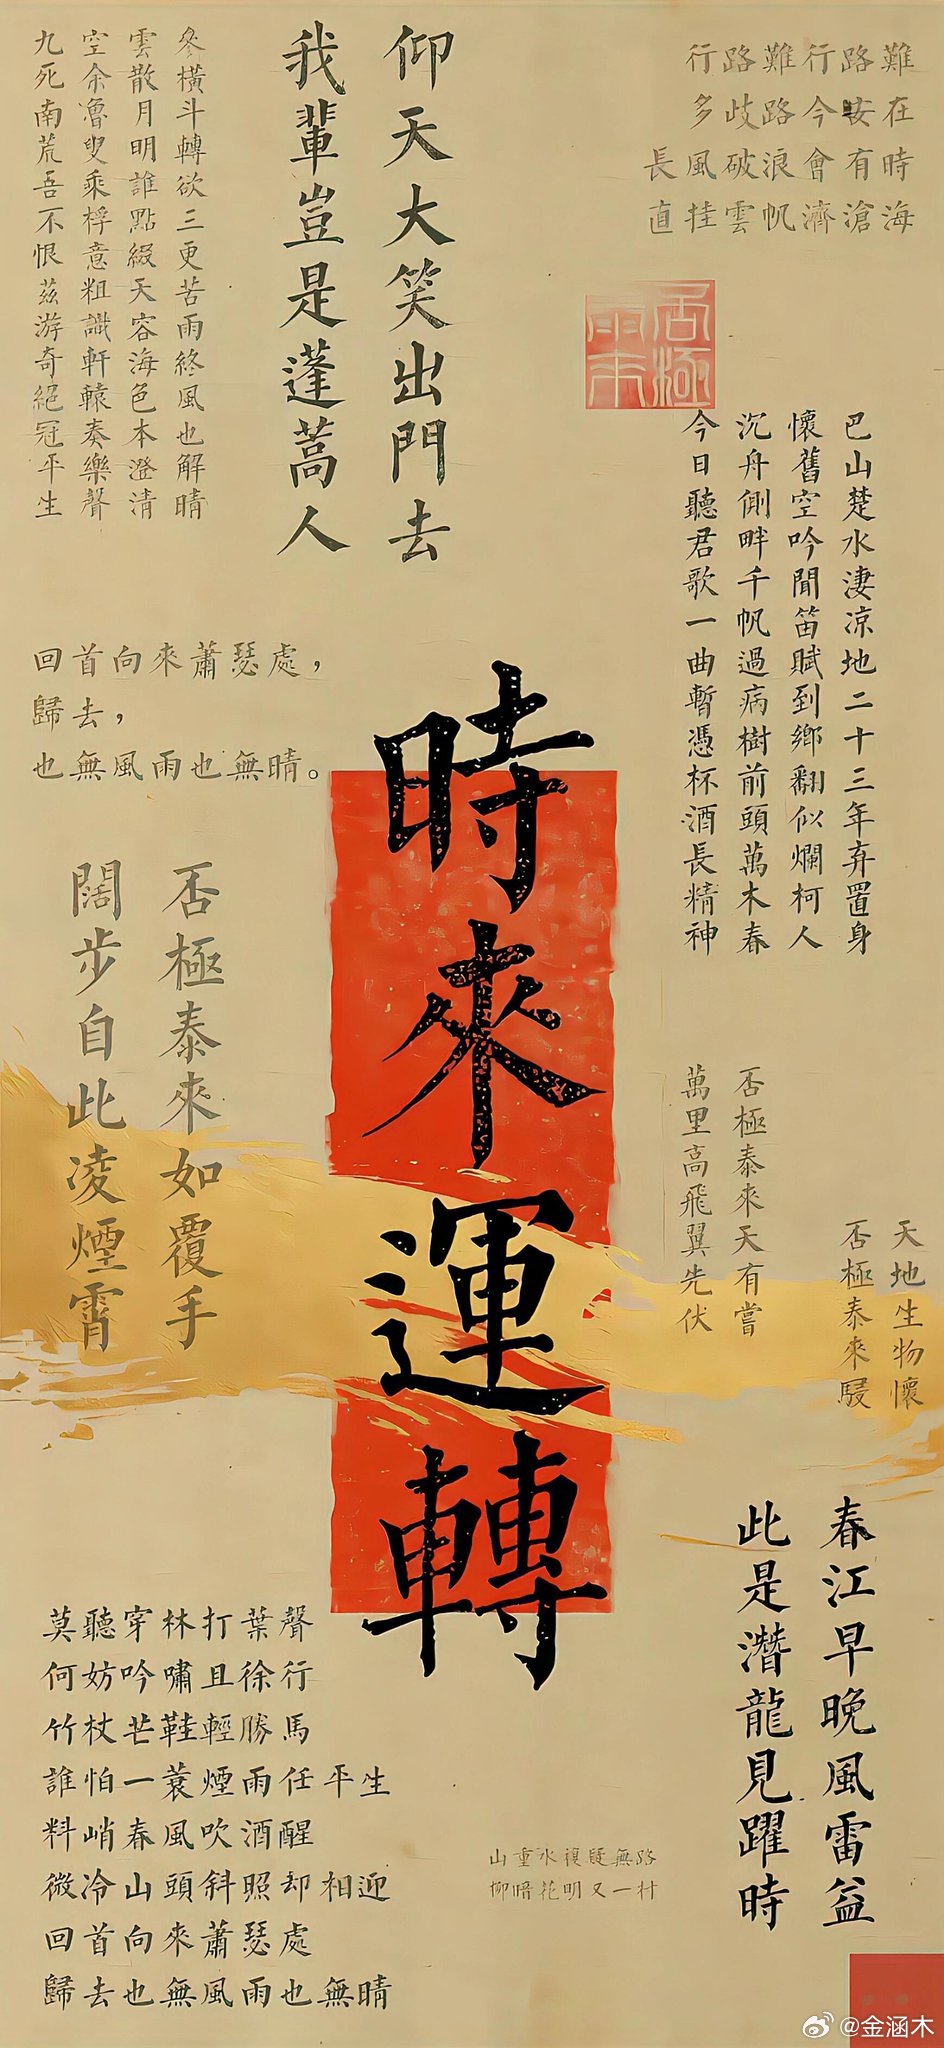 行路難行路難
多歧路今安在
長風破浪會有時
直挂雲帆濟滄海
仰天大笑出門去
我輩豈是蓬蒿人
參橫斗轉欲三更苦雨終風也解晴
雲散月明誰點綴天容海色本澄清
空余魯叟乘桴意粗識軒轅奏樂聲
九死南荒吾不恨茲游奇絕冠平生
巴山楚水淒涼地二十三年弃置身
懷舊空吟聞笛賦到鄉翻似爛柯人
沉舟側畔千帆過病樹前頭萬木春
今日聽君歌一曲暫憑杯酒長精神
回首向來蕭瑟處，
歸去，
也無風雨也無晴。
時來運轉
否極泰來如覆手
闊步自此凌煙霄
否極泰來天有嘗
萬里高飛翼先伏
天地生物懷
否極泰來駸
春江早晚風雷益
此是潛龍見躍時
莫聽穿林打葉聲
何妨吟嘯且徐行
竹杖芒鞋輕勝馬
誰怕一蓑煙雨任平生
料峭春風吹酒醒
微冷山頭斜照却相迎
回首向來蕭瑟處
歸去也無風雨也無晴
山重水複疑無路
柳暗花明又一村
@金涵木